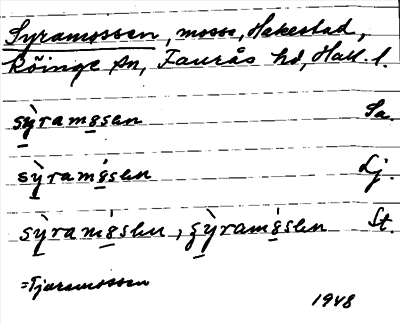 Syramossen, mosse, Hakestad,
Köinge sn, Faurås hd, Hall. l.
sỳramo̱sen Sa.
sỳramósen Lj.
sỳramósen, sỳramósen St.
=Tjäramossen
1948